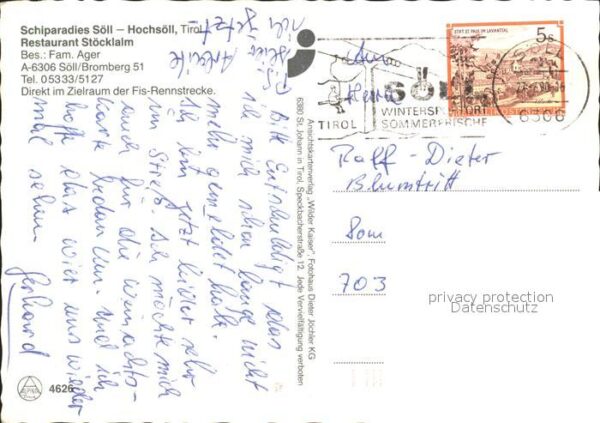 Schiparadies Söll – Hochsöll, Tirol
Restaurant Stöcklalm
Bes.: Fam. Ager
A-6306 Söll/Bromberg 51
Tel. 05333/5127
Direkt im Zielraum der Fis-Rennstrecke.
Bitte Entschuldigt das
ich mich schon lange nicht
mehr gemeldet habe.
Ich bin jetzt leider sehr
im Streß. Ich möchte mich
auch für die Weinachts-
karte bedanken. und ich
hoffe das wir uns wieder
mal sehen.
Gerhard
Ansichtskartenverlag „Wilder Kaiser", Fotohaus Dieter Jöchler KG
6380 St. Johann in Tirol, Speckbacherstraße 12. Jede Vervielfältigung verboten
4626
TIROL
SÖLL
WINTERSPORT
SOMMERFRISCHE
STIFT ST. PAUL IM LAVANTTAL
5s
6306
Herrn
Ralf - Dieter
Blumtritt
703
privacy protection
Datenschutz